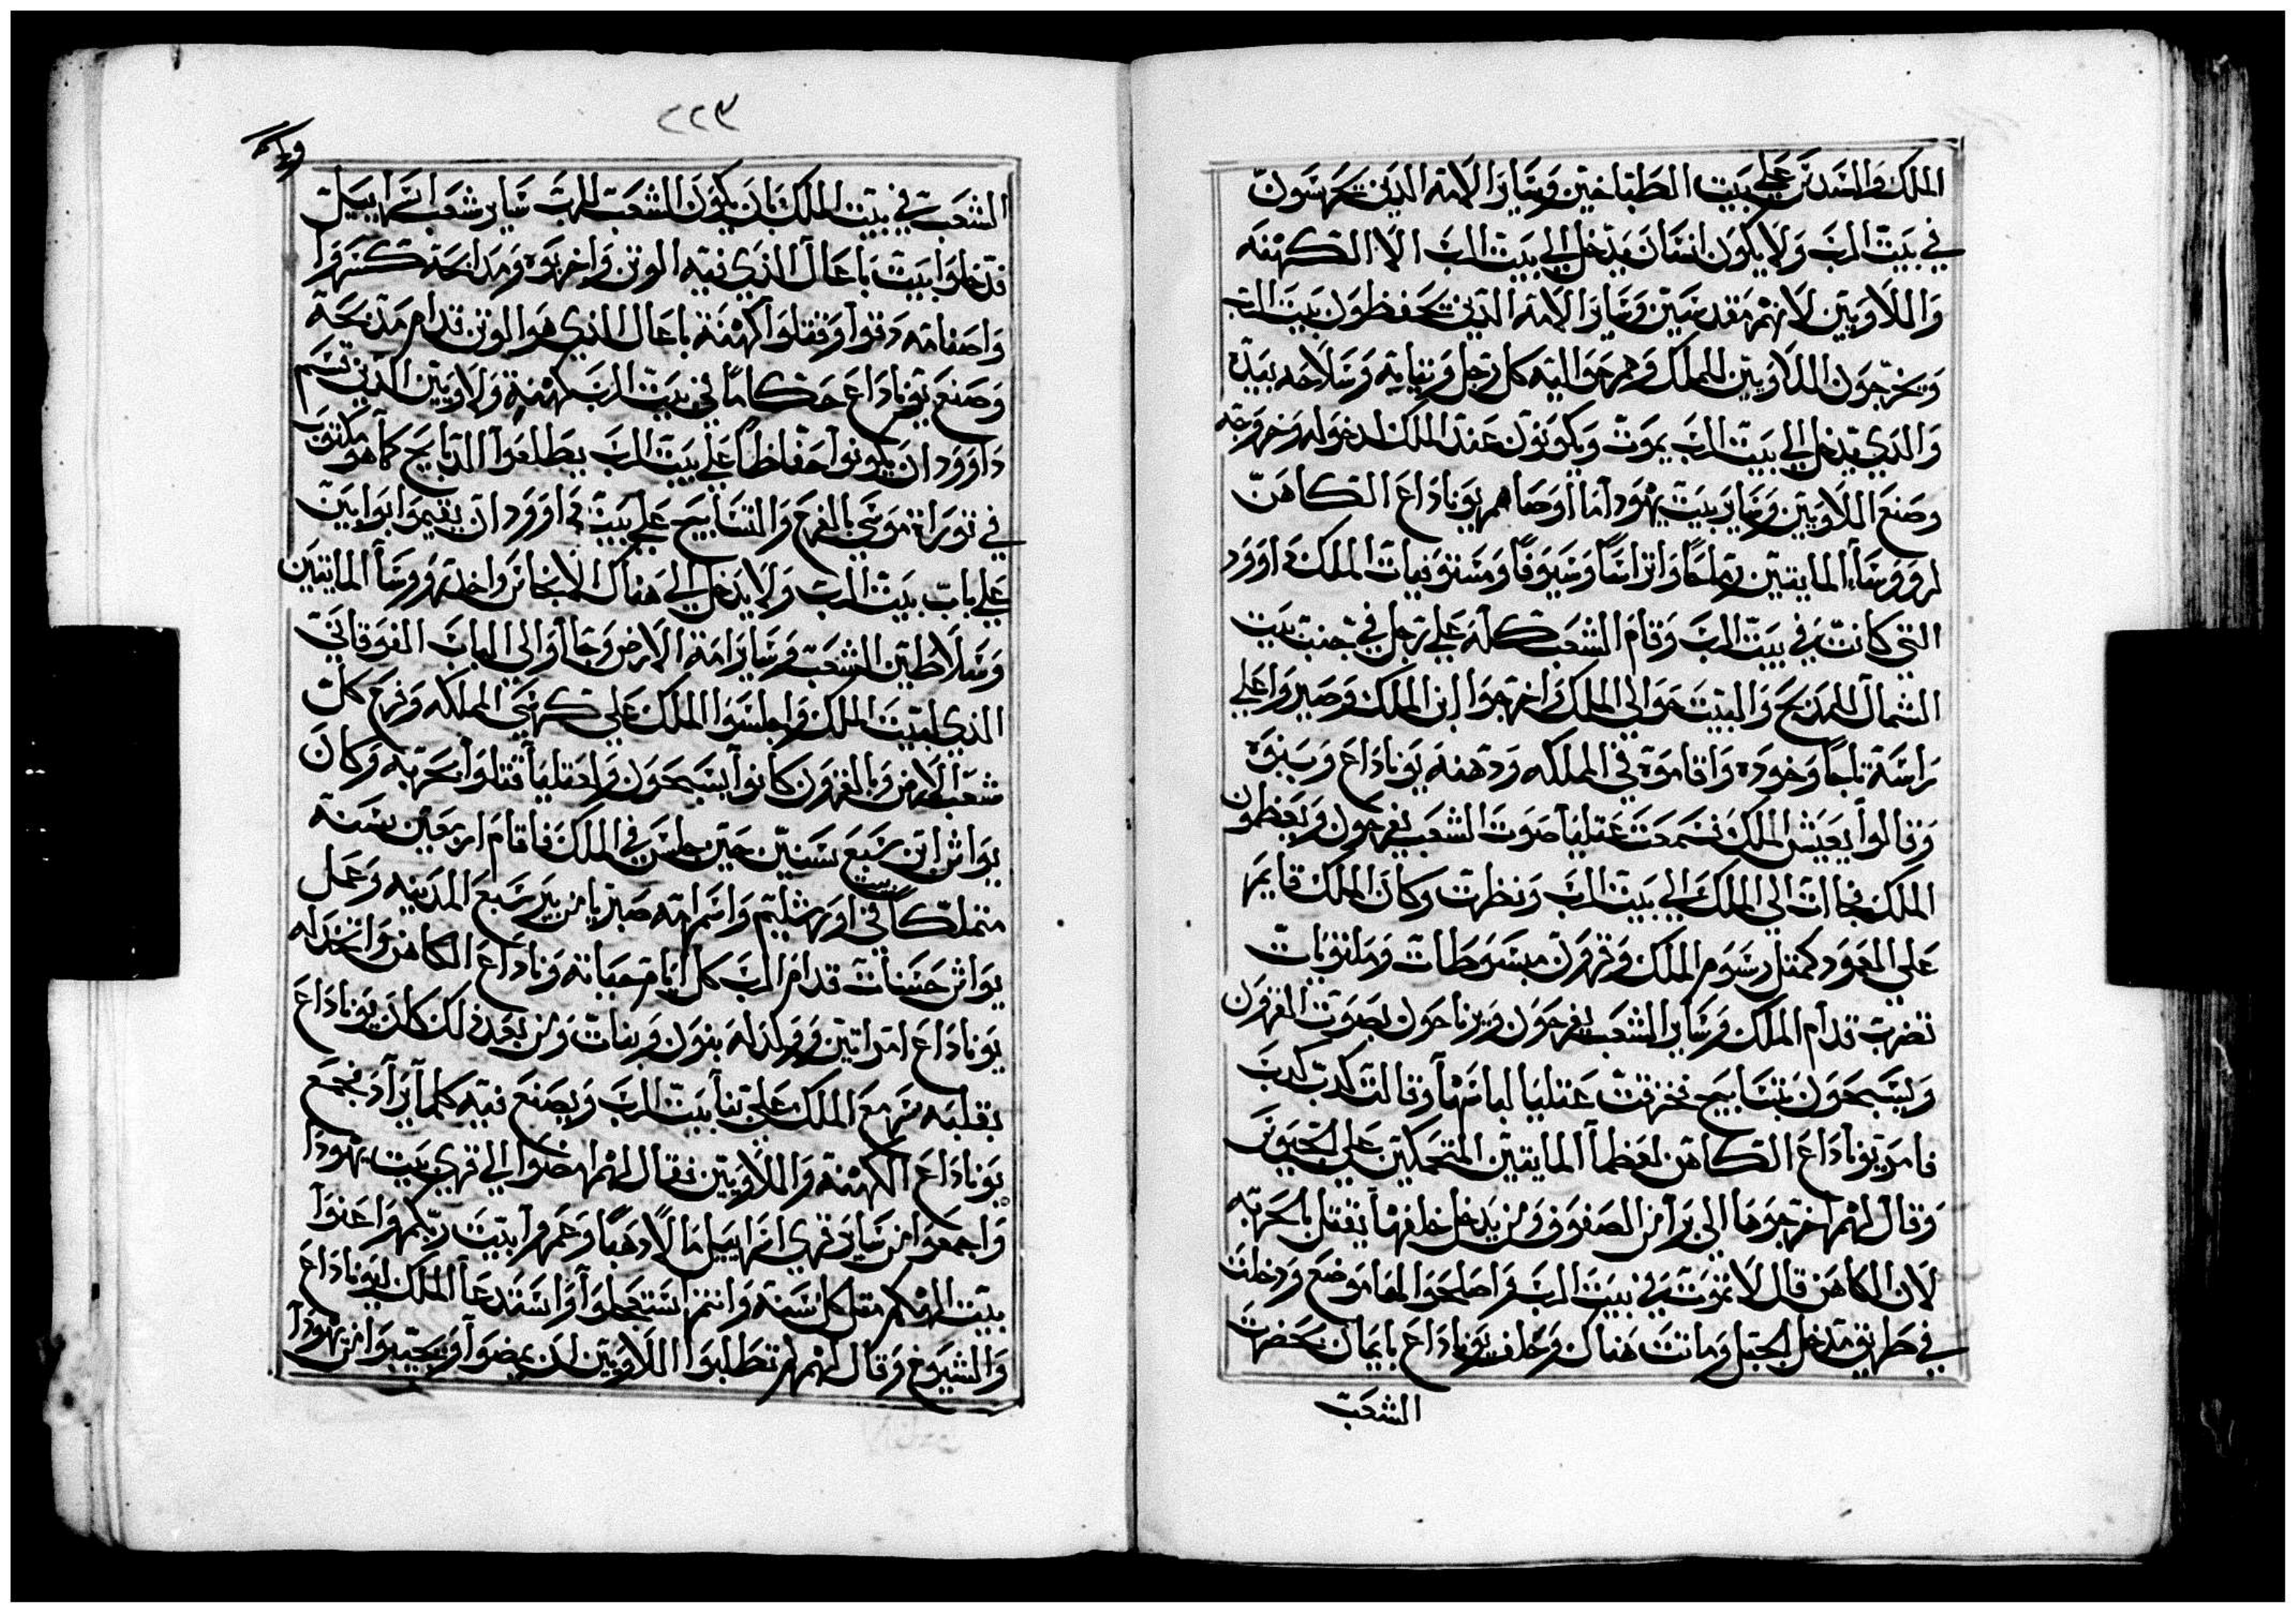 الملك والسدس علي بيت الطباخين وساير الامه الدين يحرسون
في بيت الرب ولا يكون انسان يدخل الي بيت الرب الا الكهنه
واللاويين لانهم مقدسين وساير الامه الدين يحفظون بيت الرب
ويخرجون اللاويين للملك وهم حواليه كل رجل وثيابه وسلاحه بيده
والدي يدخل الي بيت الرب يموت ويكونون عند الملك لدخوله وخروجه
وصنع اللاويين وساير بيت يهودا ما اوصاهم يوناداع الكاهن
لرووساء المايتين واتراسا وسيوفا ومستوفيات الملك داوود
التي كانت في بيت الرب وقام الشعب كله علي رجل في جنبت بيت
الشمال للمدبح والبيت حوالي الملك واخرجوا ابن الملك وصيروا علي
راسه تاجا وخوده واقاموه في المملكه ودهنه يوناداع وبنوه
وقالوا يعيش الملك فسمعت عتليا صوت الشعب يفرحون ويعظمون
الملك فجاات الي الملك الي بيت الرب ونظرت وكان الملك قايم
علي العمود كمثل رسوم الملك وقرون مبسوطات وملتويات
تضرب قدام الملك وساير الشعب يفرحون ويرتاحون بصوت القرون
ويسبحون بتسابيح فخرقت عتليا لباسها وقالت كدب كدب
فامر يوناداع الكاهن لعظما المايتين المتحملين علي الجيوش
وقال لهم اخرجوها الي برا من الصفوف ومن يدخل خلفها يقتل بالحربه
لان الكاهن قال لا تموت في بيت الرب واصلحوا لها موضع ودخلت
في طريق مدخل الجبل وماتت هناك وحلف يوناداع بايمان بحضرت
الشعب
٢٢٣
الشعب في بيت الملك بان يكون الشعب للرب ساير شعب اسراييل
فدخلوا بيت باعال الذي فيه الوثن واخربوه ومدابحه كسروا
واصنامه دقوا وقتلوا كهنة باعال الذي هو الوثن قدام مدبحه
وصنع يوناداع حكاما في بيت الرب كهنة ولاويين الذين قسم
داوود ان يكونوا حفاظا علي بيت الرب يطلعوا الدبايح كما هو مكتوب
في توراة موسي بالفرح والتسابيح علي بيت داوود ان يقيموا بوابين
علي باب بيت الرب ولا يدخل الي هناك الا واخد رووسا المايتين
وسلاطين الشعب وساير امة الارض وجاوا الي الباب الفوقاني
الذي لبيت الملك واجلسوا الملك علي كرسي المملكه وفرح كل
شعب الارض وبالقرون كانوا يسبحون وعتليا قتلوا بحربه وكان
يواش ابن سبع سنين حين جلس في الملك فاقام اربعين سنه
متملكا في اورشليم واسم امه صبريا من بير سبع المدينه وعمل
يواش حسنات قدام الرب كل ايام حياته وناداع الكاهن واتخد له
يوناداع امراتين وولد له بنون وبنات ومن بعد ذلك كان يوناداع
بقلبه مع الملك علي بنا بيت الرب ويصنع فيه كلما يراد فجمع
يوناداع الكهنة واللاويين فقال لهم اخرجوا الي قري بيت يهودا
واجمعوا من ساير قري اسراييل مالا ودهبا وعمروا بيت ربكم واعنوا
بيت الهكم مقل كل سنه وانتم استعجلوا واستدعا الملك ليوناداع
والشيوخ وقال لهم لم تطلبوا اللاويين ان يمضوا ويجيبوا من يهودا